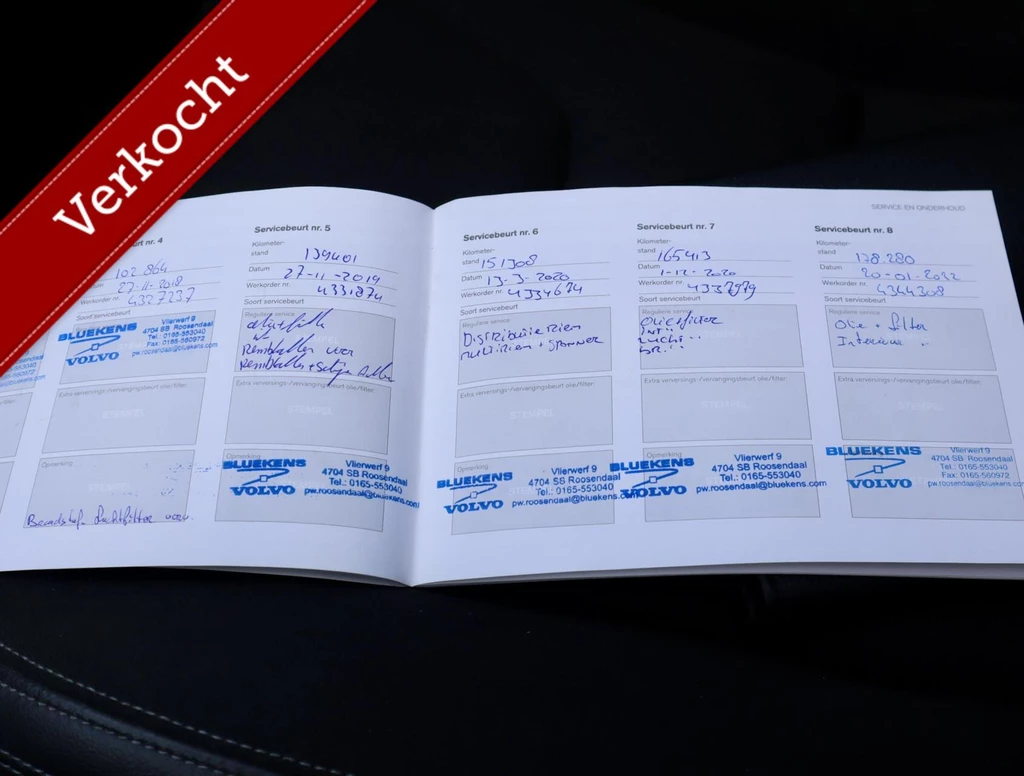 Verkocht
SERVICE EN ONDERHOUD
Servicebeurt nr. 4
102 864
27-11-2018
Werkorder nr. 4327237
Soort servicebeurt
BLUEKENS
VOLVO
Vlierwerf 9
4704 SB Roosendaal
Tel.: 0165-553040
Fax: 0165-560972
pw.roosendaal@bluekens.com
Extra verversings-/vervangingsbeurt olie/filter:
STEMPEL
Opmerking
Servicebeurt nr. 5
Kilometer-
stand 139401
Datum 27-11-2019
Werkorder nr. 4331874
Soort servicebeurt
Reguliere service
Extra verversings-/vervangingsbeurt olie/filter:
STEMPEL
Opmerking
BLUEKENS
VOLVO
Vlierwerf 9
4704 SB Roosendaal
Tel.: 0165-553040
pw.roosendaal@bluekens.com
Servicebeurt nr. 6
Kilometer-
stand 151308
Datum 13-3-2020
Werkorder nr. 4334674
Soort servicebeurt
Reguliere service
Distributieriem
multiriem + spanner
Extra verversings-/vervangingsbeurt olie/filter:
STEMPEL
Opmerking
BLUEKENS
VOLVO
Vlierwerf 9
4704 SB Roosendaal
Tel.: 0165-553040
pw.roosendaal@bluekens.com
Servicebeurt nr. 7
Kilometer-
stand 165413
Datum 1-12-2020
Werkorder nr. 4337979
Soort servicebeurt
Reguliere service
Extra verversings-/vervangingsbeurt olie/filter:
STEMPEL
Opmerking
BLUEKENS
VOLVO
Vlierwerf 9
4704 SB Roosendaal
Tel.: 0165-553040
pw.roosendaal@bluekens.com
Servicebeurt nr. 8
Kilometer-
stand 178.280
Datum 20-01-2022
Werkorder nr. 4344308
Soort servicebeurt
Reguliere service
Olie + filter
Interieur
Extra verversings-/vervangingsbeurt olie/filter:
STEMPEL
BLUEKENS
VOLVO
Vlierwerf 9
4704 SB Roosendaal
Tel.: 0165-553040
Fax: 0165-560972
pw.roosendaal@bluekens.co